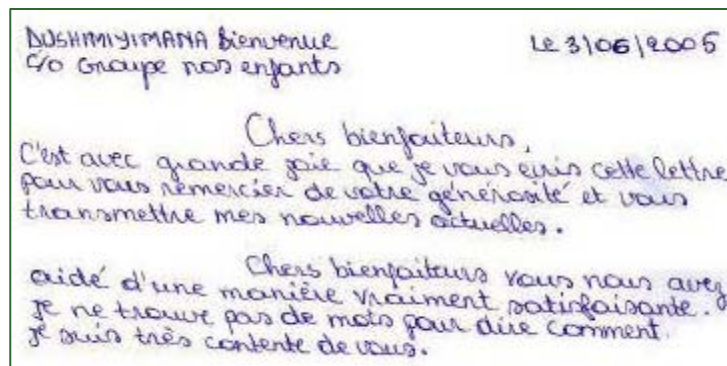 DUSHIMIYIMANA Bienvenue
Le 3/06/2005
C/o Groupe nos enfants
Chers bienfaiteurs,
C'est avec grande joie que je vous ecris cette lettre
pour vous remercier de votre générosité et vous
transmettre mes nouvelles actuelles.
Chers bienfaiteurs vous nous avez
aidé d'une manière vraiment satisfaisante.
je ne trouve pas de mots pour dire comment
je suis très contente de vous.